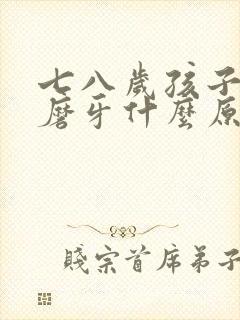 七八歲孩子
磨牙什麼原
賤宗首席弟子